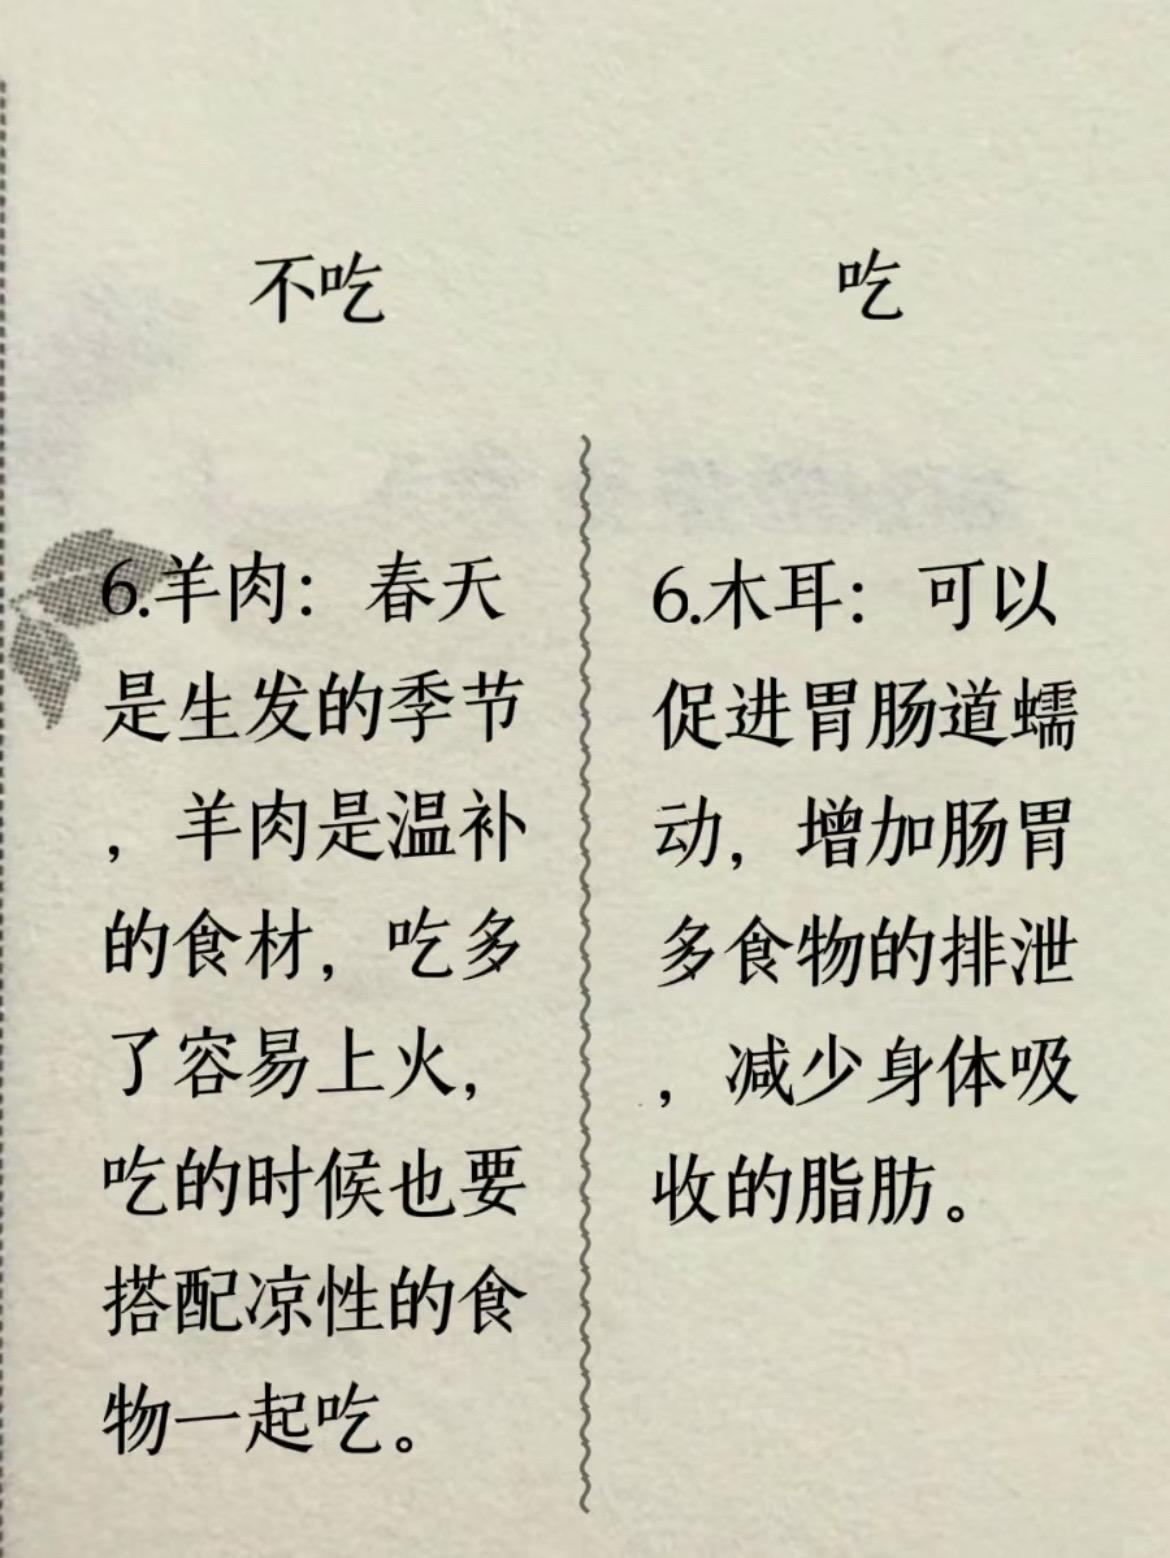 不吃
6.羊肉：春天
是生发的季节
，羊肉是温补
的食材，吃多
了容易上火，
吃的时候也要
搭配凉性的食
物一起吃。
吃
6.木耳：可以
促进胃肠道蠕
动，增加肠胃
多食物的排泄
，减少身体吸
收的脂肪。